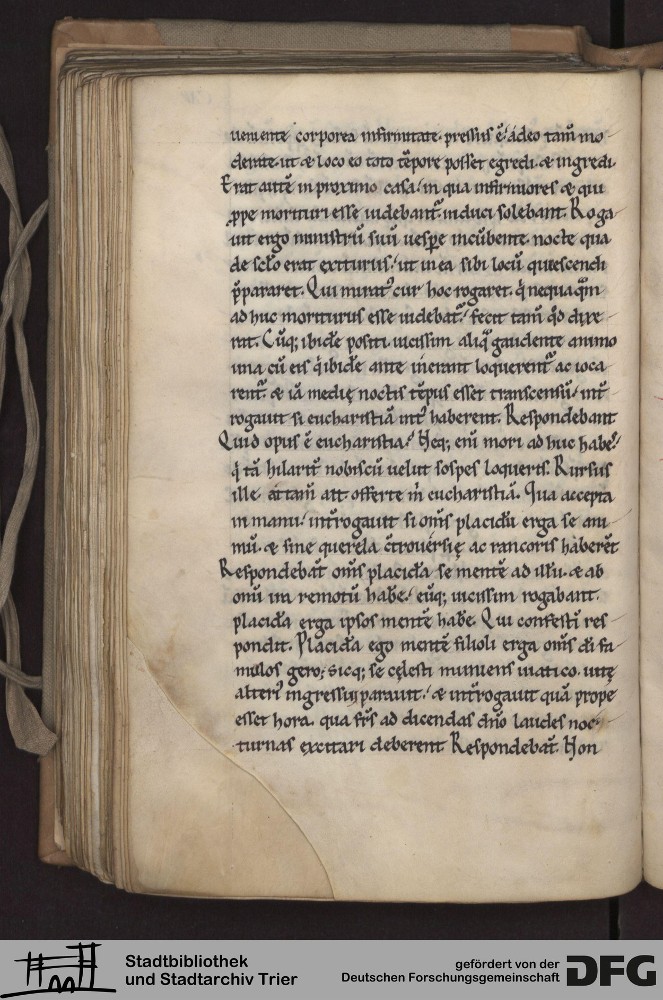 ueniente corporea infirmitate. pressus ē. adeo tam̄ mo
derate. ut & loco eo toto tēpore posset egredi. & ingredi.
Erat autē in proximo casa. in qua infirmiores & qui
ꝓpe morituri esse uidebant̄. induci solebant. Roga
uit ergo ministrū suū uespe incūbente. nocte qua
de sc̄lo erat exiturus. ut in ea sibi locū quiescendi
p̄pararet. Qui mirat᷒ cur hoc rogaret. q̇ nequaq̄m
ad huc moriturus esse uidebat̄. fecit tam̄ qd̄ dixe
rat. Cūq; ibidē positi. uicissim aliq̄ gaudente animo
una cū eis q̇ ibidē ante inerant loquerent̄ ac ioca
rent̄. & iā medię noctis tēpus esset transcensū. int̄
rogauit si eucharistiā int᷒ haberent. Respondebant
Quid opus ē eucharistia. Neq; enī mori ad huc habes.
q̇ tā hilarit̄ nobiscū uelut sospes loqueris. Rursus
ille. attam̄ ait offerte m̄ eucharistiā. Qua accepta
in manu. int̄rogauit si om̄s placidū erga se ani
mū. & sine querela c̄trouersię ac rancoris haberēt
Respondebat̄ om̄s placidā se mentē ad illū. & ab
omī ira remotū habē. eūq; uicissim rogabant.
placidā erga ipsos mentē habē. Qui confestī res
pondit. Placidā ego mentē filioli erga om̄s dī fa
mulos gero. sicq; se cęlesti muniens uiatico. uitę
alteri᷒ ingressui parauit. & int̄rogauit quā prope
esset hora. qua fr̄s ad dicendas dn̄o laudes noc
turnas excitari deberent Respondebat̄. Non
Stadtbibliothek
und Stadtarchiv Trier
gefördert von der
Deutschen Forschungsgemeinschaft
DFG